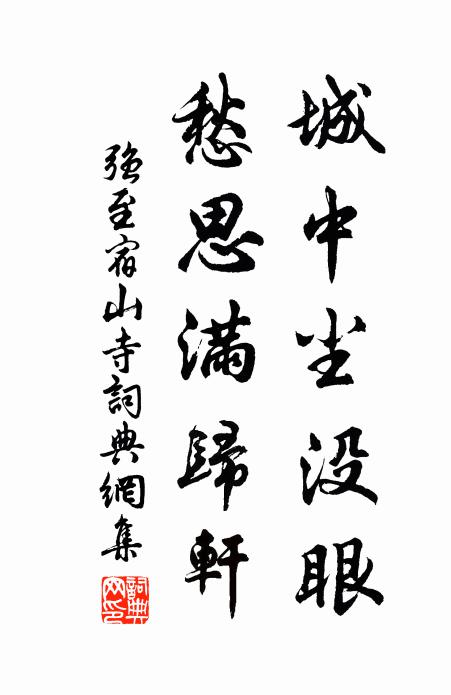 城中尘没眼
愁思滿歸軒
强至宿山寺詞典網集
詞典网印